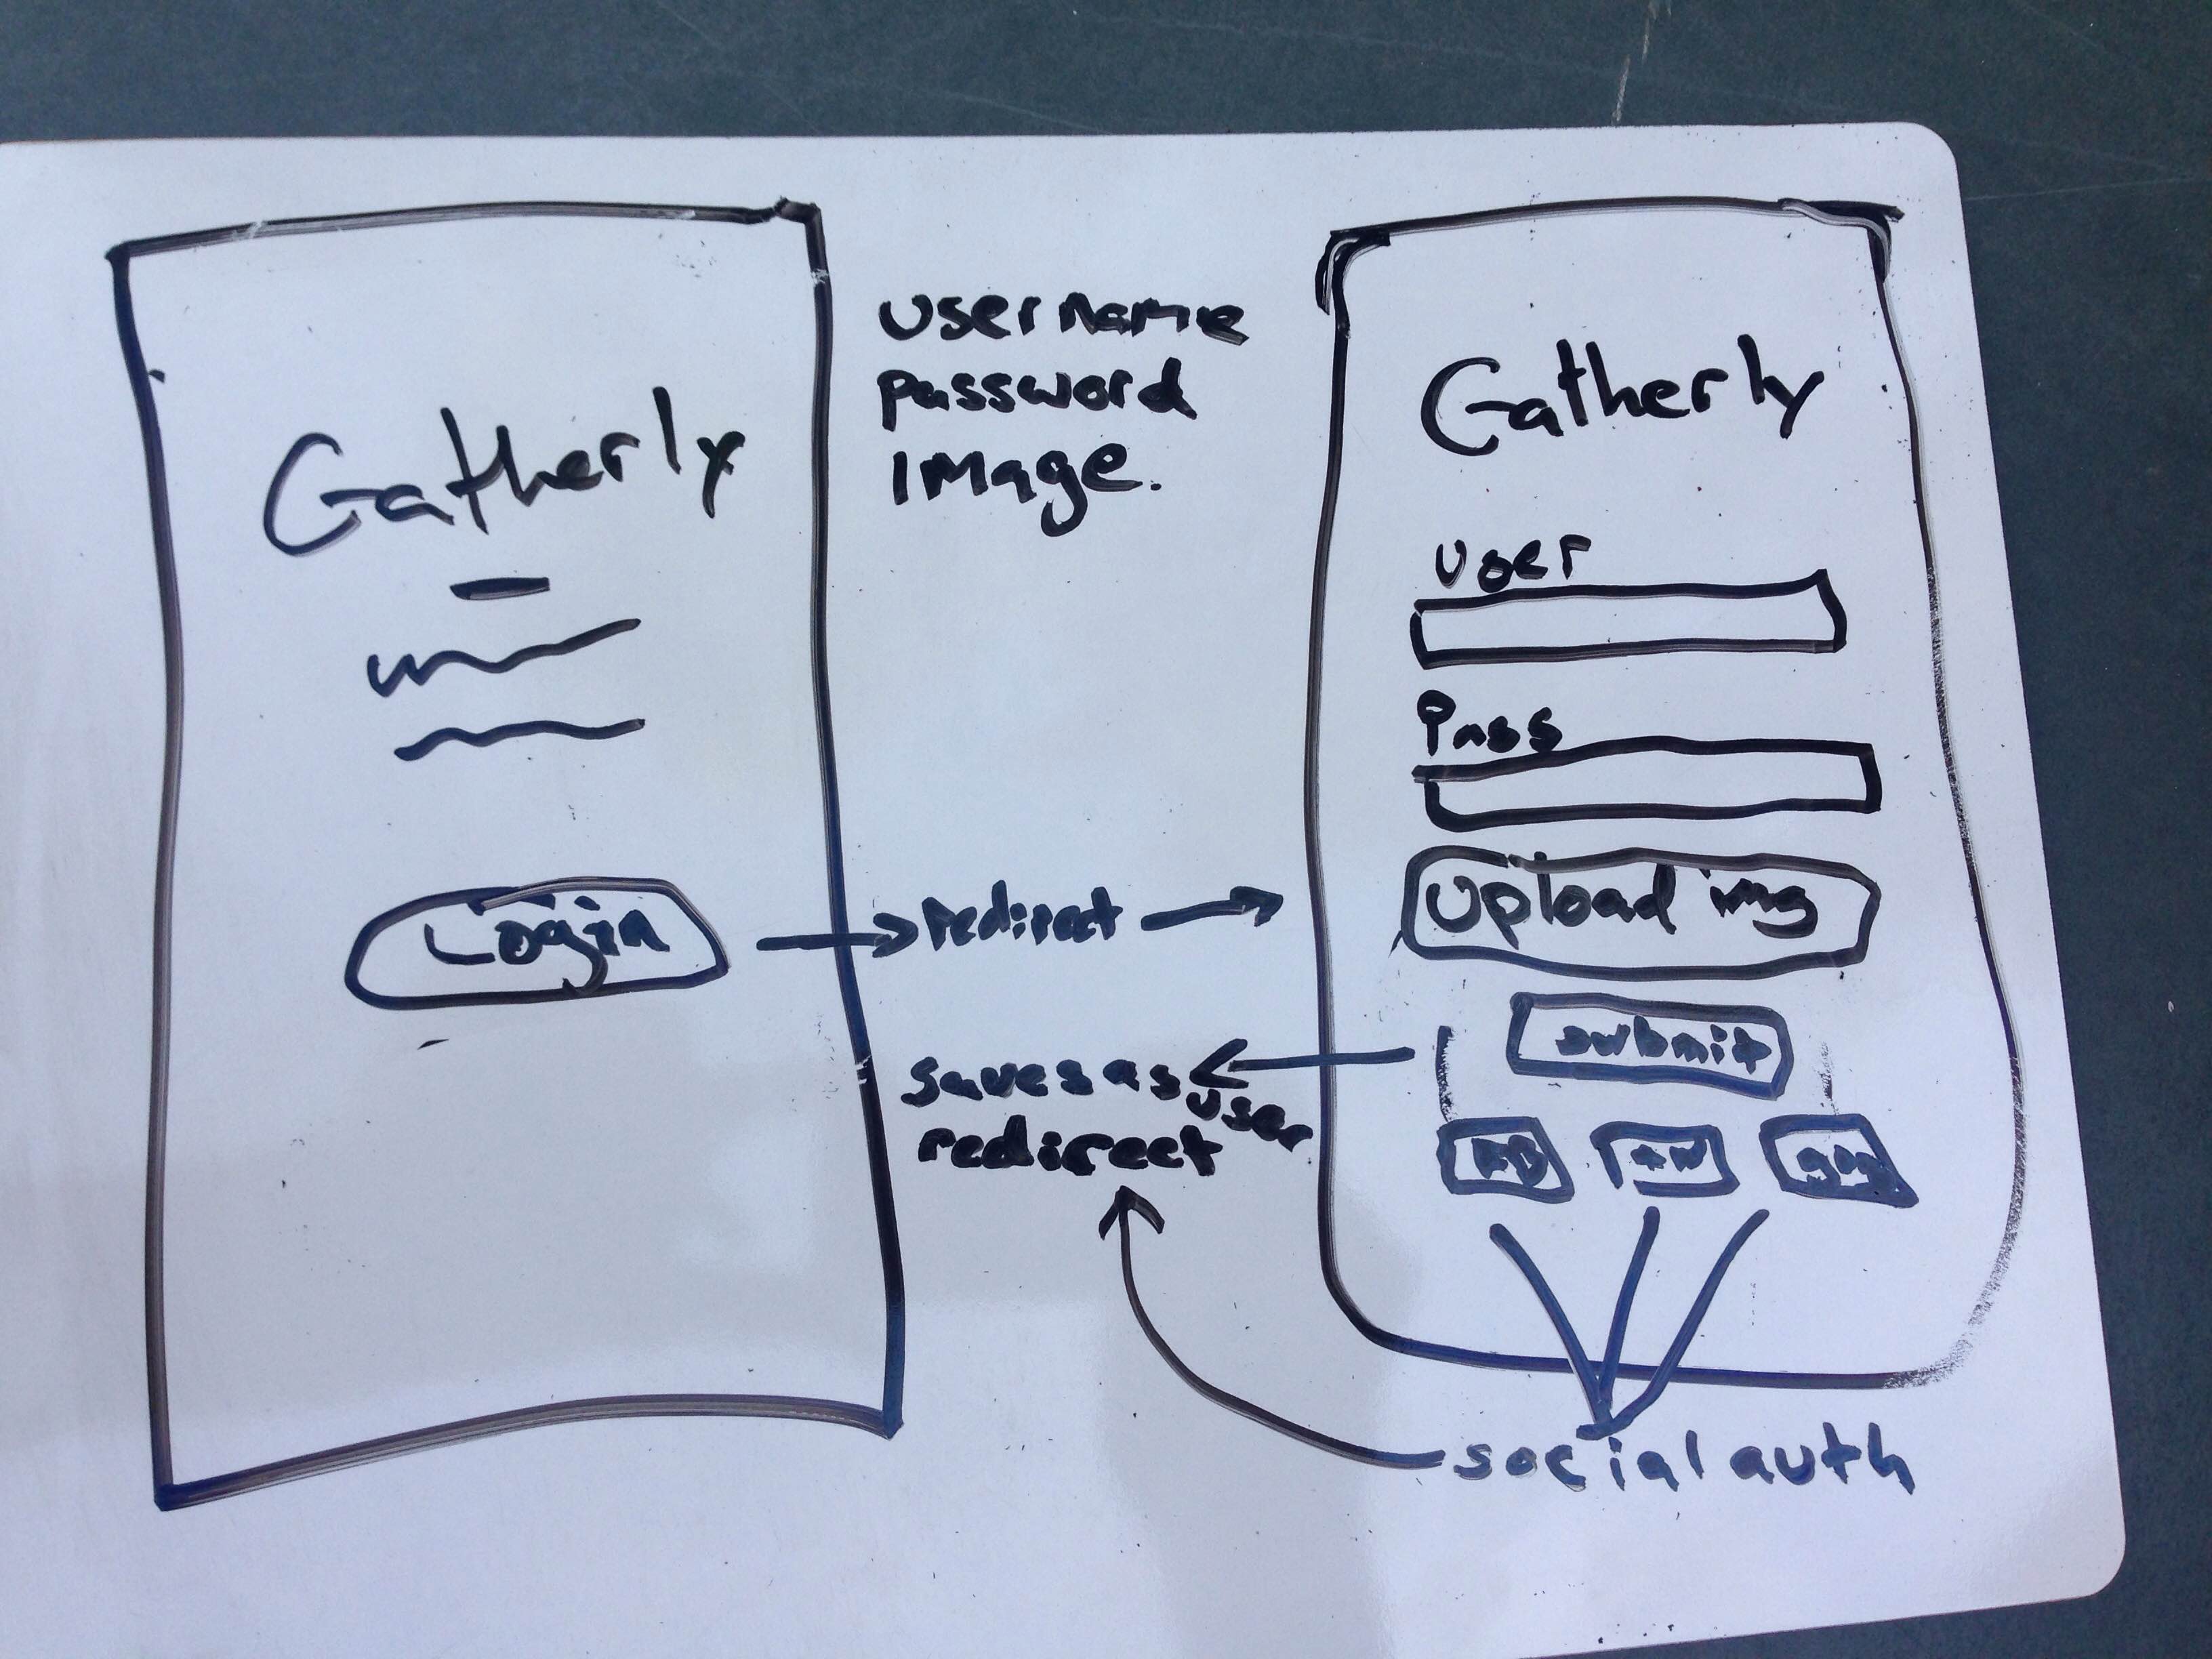 Gatherly
Login
username
password
image.
redirect
saves as user
redirect
Gatherly
user
Pass
Upload img
submit
FB
tw
social auth